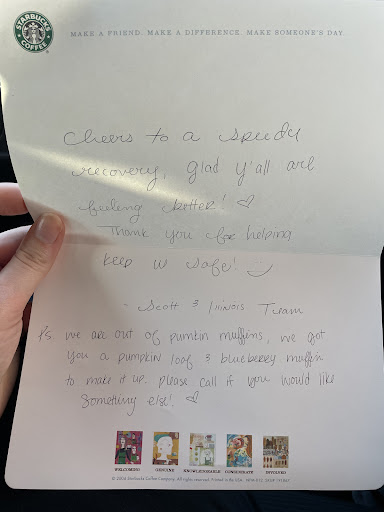 STARBUCKS COFFEE
MAKE A FRIEND. MAKE A DIFFERENCE. MAKE SOMEONE'S DAY.
Cheers to a speedy
recovery, glad y'all are
feeling better! ♡
Thank you for helping
keep us safe!
- Scott & Illinois Team
Ps. we are out of pumkin muffins, we got
you a pumpkin loaf & blueberry muffin
to make it up. please call if you would like
something else! ♡
WELCOMING GENUINE KNOWLEDGEABLE CONSIDERATE INVOLVED
© 2004 Starbucks Coffee Company. All rights reserved. Printed in the USA.